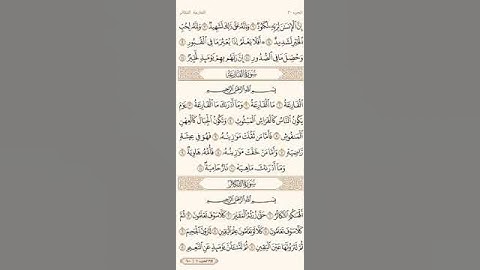 إِنَّ ٱلْإِنسَٰنَ لِرَبِّهِۦ لَكَنُودٌ ٦ وَإِنَّهُۥ عَلَىٰ ذَٰلِكَ لَشَهِيدٌ ٧ وَإِنَّهُۥ لِحُبِّ
ٱلْخَيْرِ لَشَدِيدٌ ٨ ۞ أَفَلَا يَعْلَمُ إِذَا بُعْثِرَ مَا فِي ٱلْقُبُورِ ٩
وَحُصِّلَ مَا فِي ٱلصُّدُورِ ١٠ إِنَّ رَبَّهُم بِهِمْ يَوْمَئِذٍ لَّخَبِيرٌۢ ١١
سُورَةُ ٱلْقَارِعَةِ
بِسْمِ ٱللَّهِ ٱلرَّحْمَٰنِ ٱلرَّحِيمِ
ٱلْقَارِعَةُ ١ مَا ٱلْقَارِعَةُ ٢ وَمَآ أَدْرَىٰكَ مَا ٱلْقَارِعَةُ ٣ يَوْمَ
يَكُونُ ٱلنَّاسُ كَٱلْفَرَاشِ ٱلْمَبْثُوثِ ٤ وَتَكُونُ ٱلْجِبَالُ كَٱلْعِهْنِ
ٱلْمَنفُوشِ ٥ فَأَمَّا مَن ثَقُلَتْ مَوَٰزِينُهُۥ ٦ فَهُوَ فِي عِيشَةٍ
رَّاضِيَةٍ ٧ وَأَمَّا مَنْ خَفَّتْ مَوَٰزِينُهُۥ ٨ فَأُمُّهُۥ هَاوِيَةٌ ٩
وَمَآ أَدْرَىٰكَ مَا هِيَهْ ١٠ نَارٌ حَامِيَةٌۢ ١١
سُورَةُ ٱلتَّكَاثُرِ
بِسْمِ ٱللَّهِ ٱلرَّحْمَٰنِ ٱلرَّحِيمِ
أَلْهَىٰكُمُ ٱلتَّكَاثُرُ ١ حَتَّىٰ زُرْتُمُ ٱلْمَقَابِرَ ٢ كَلَّا سَوْفَ تَعْلَمُونَ ٣ ثُمَّ
كَلَّا سَوْفَ تَعْلَمُونَ ٤ كَلَّا لَوْ تَعْلَمُونَ عِلْمَ ٱلْيَقِينِ ٥ لَتَرَوُنَّ ٱلْجَحِيمَ ٦
ثُمَّ لَتَرَوُنَّهَا عَيْنَ ٱلْيَقِينِ ٧ ثُمَّ لَتُسْـَٔلُنَّ يَوْمَئِذٍ عَنِ ٱلنَّعِيمِ ٨